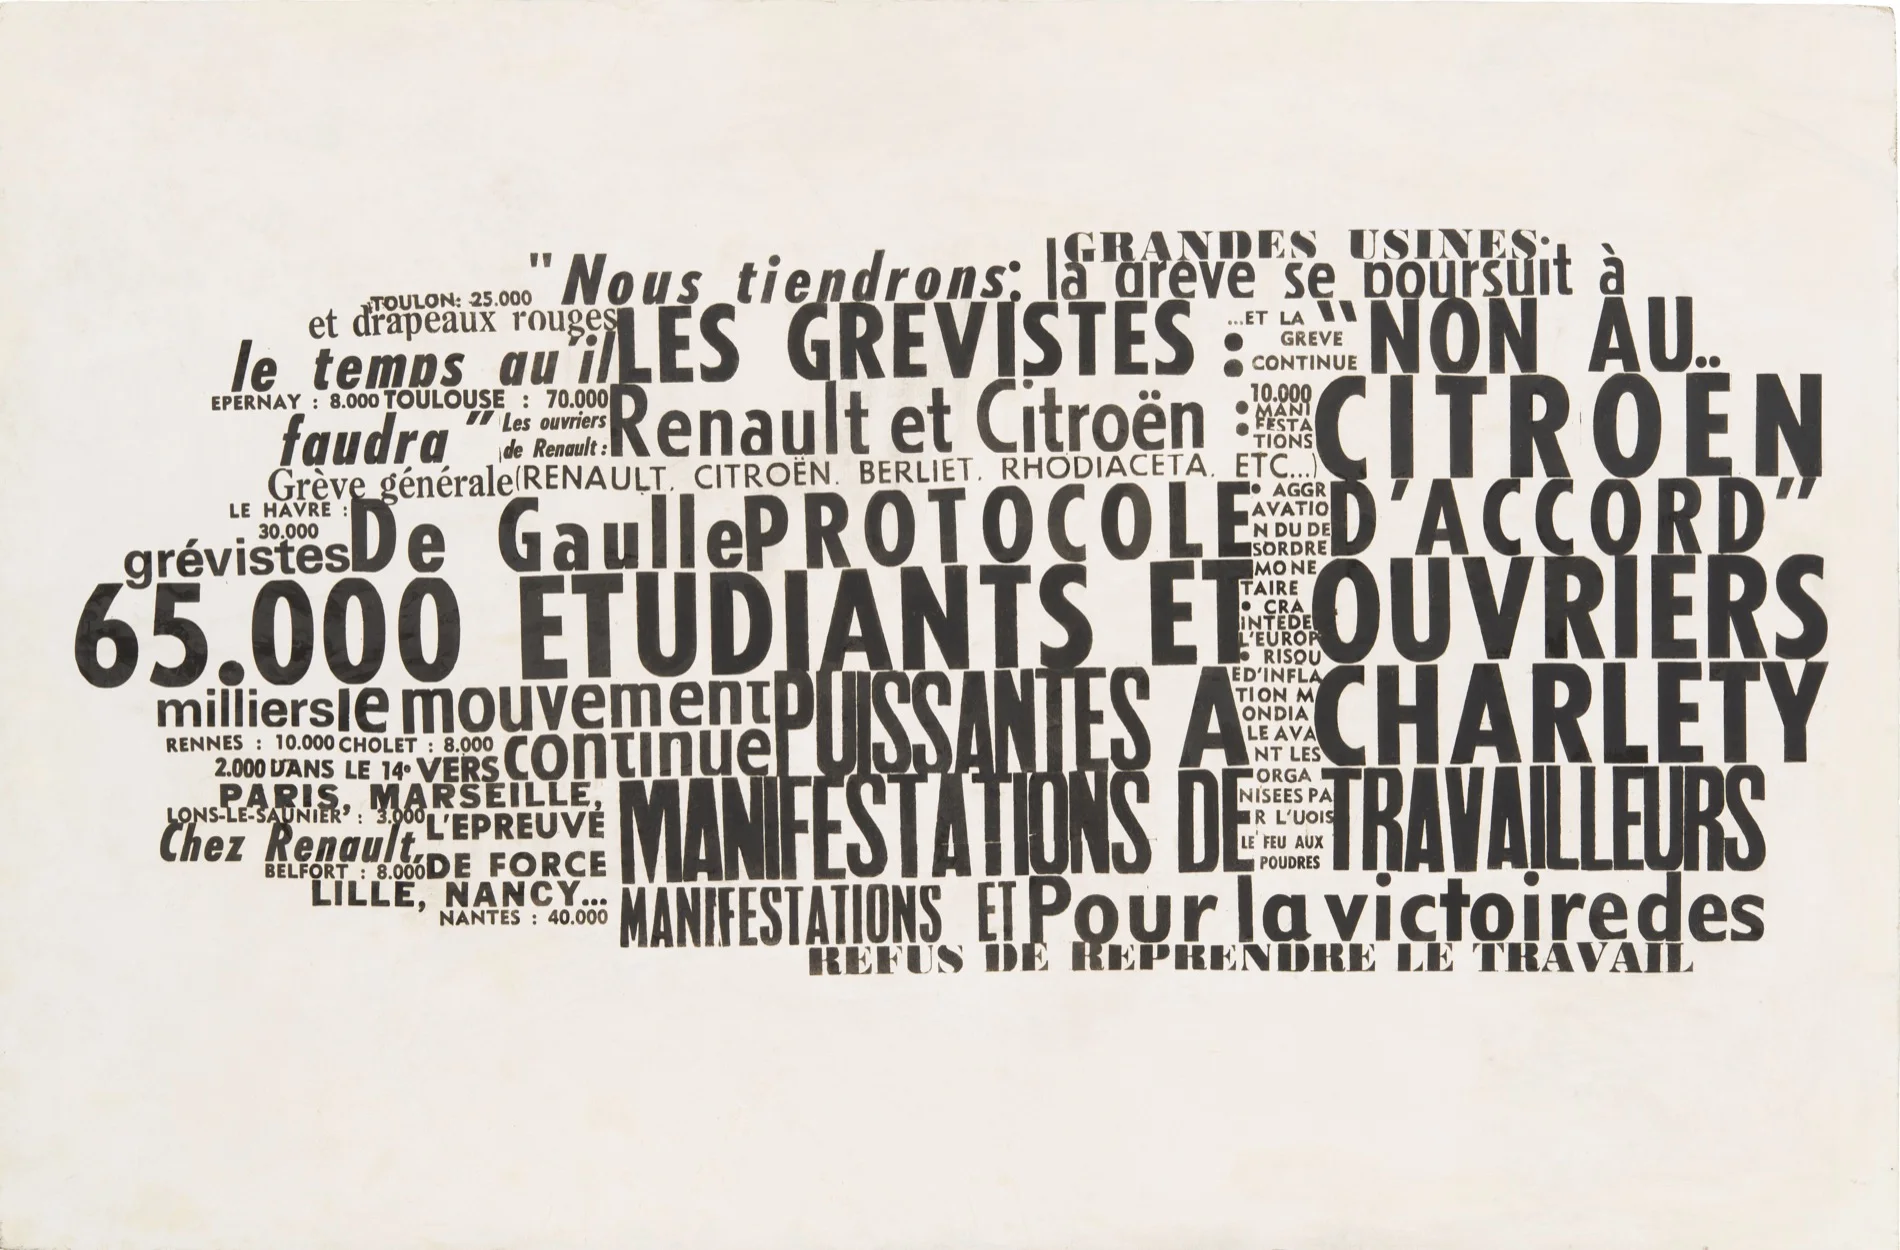 GRANDES USINES:
"Nous tiendrons: la grève se poursuit à
TOULON: 25.000
et drapeaux rouges
LES GREVISTES :
...ET LA
GREVE
CONTINUE
“NON AU..
le temps qu'il
EPERNAY : 8.000 TOULOUSE : 70.000
faudra”
Les ouvriers
de Renault :
Renault et Citroën :
10.000
MANI
FESTA
TIONS
CITROËN
Grève générale (RENAULT. CITROËN. BERLIET. RHODIACETA. ETC...)
LE HAVRE :
30.000
grévistes
De Gaulle PROTOCOLE
• AGGR
AVATIO
N DU DE
SORDRE
MONE
TAIRE
• CRA
INTEDE
L'EUROP
• RISQU
ED'INFLA
TION M
ONDIA
LE AVA
NT LES
ORGA
NISEES PA
R L'UOIS
LE FEU AUX
POUDRES
D'ACCORD”
65.000 ETUDIANTS ET OUVRIERS
milliers le mouvement PUISSANTES A CHARLETY
RENNES : 10.000 CHOLET : 8.000
continue
2.000 DANS LE 14e VERS
PARIS, MARSEILLE,
LONS-LE-SAUNIER : 3.000
L'EPREUVE
Chez Renault,
MANIFESTATIONS DE TRAVAILLEURS
BELFORT : 8.000 DE FORCE
LILLE, NANCY...
NANTES : 40.000
MANIFESTATIONS ET Pour la victoire des
REFUS DE REPRENDRE LE TRAVAIL